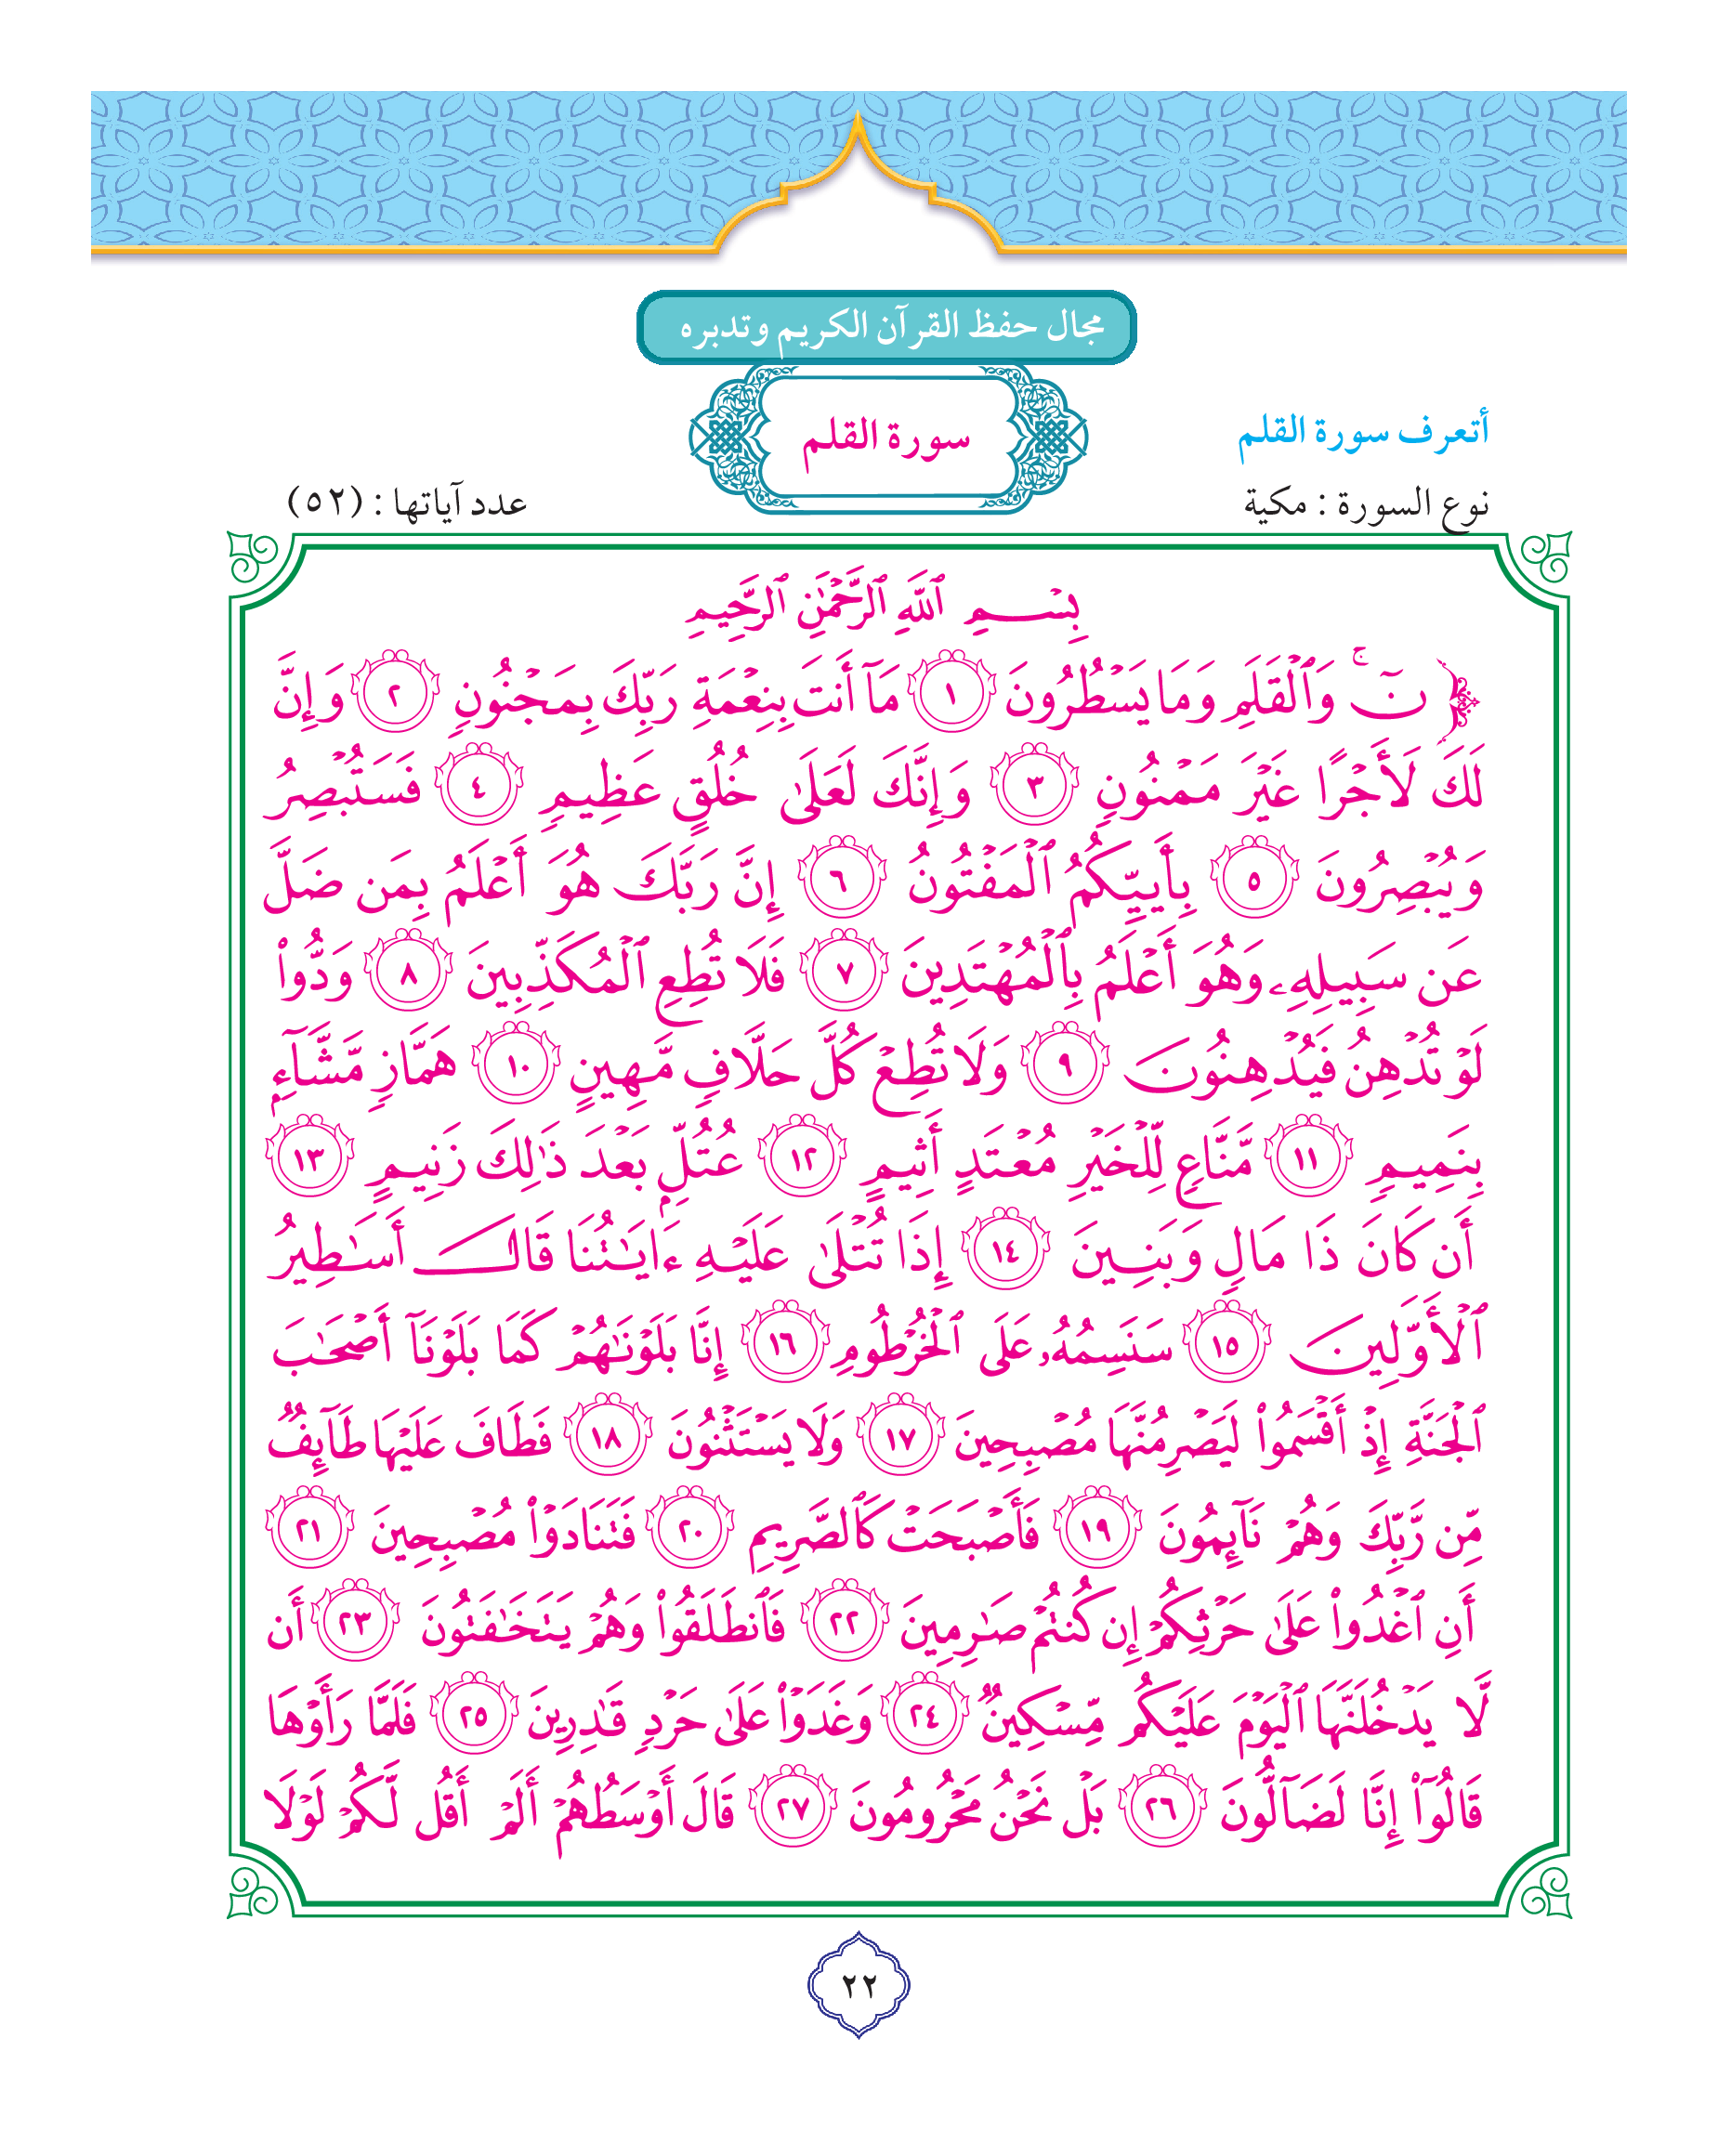 مجال حفظ القرآن الكريم وتدبره
أتعرف سورة القلم
سورة القلم
نوع السورة : مكية
عدد آياتها : (٥٢)
بِسْمِ ٱللَّهِ ٱلرَّحْمَٰنِ ٱلرَّحِيمِ
﴿ نٓ ۚ وَٱلْقَلَمِ وَمَا يَسْطُرُونَ ١ مَآ أَنتَ بِنِعْمَةِ رَبِّكَ بِمَجْنُونٍ ٢ وَإِنَّ
لَكَ لَأَجْرًا غَيْرَ مَمْنُونٍ ٣ وَإِنَّكَ لَعَلَىٰ خُلُقٍ عَظِيمٍ ٤ فَسَتُبْصِرُ
وَيُبْصِرُونَ ٥ بِأَييِّكُمُ ٱلْمَفْتُونُ ٦ إِنَّ رَبَّكَ هُوَ أَعْلَمُ بِمَن ضَلَّ
عَن سَبِيلِهِۦ وَهُوَ أَعْلَمُ بِٱلْمُهْتَدِينَ ٧ فَلَا تُطِعِ ٱلْمُكَذِّبِينَ ٨ وَدُّوا۟
لَوْ تُدْهِنُ فَيُدْهِنُونَ ٩ وَلَا تُطِعْ كُلَّ حَلَّافٍ مَّهِينٍ ١٠ هَمَّازٍ مَّشَّآءٍۭ
بِنَمِيمٍ ١١ مَّنَّاعٍ لِّلْخَيْرِ مُعْتَدٍ أَثِيمٍ ١٢ عُتُلٍّۭ بَعْدَ ذَٰلِكَ زَنِيمٍ ١٣
أَن كَانَ ذَا مَالٍ وَبَنِينَ ١٤ إِذَا تُتْلَىٰ عَلَيْهِ ءَايَٰتُنَا قَالَ أَسَٰطِيرُ
ٱلْأَوَّلِينَ ١٥ سَنَسِمُهُۥ عَلَى ٱلْخُرْطُومِ ١٦ إِنَّا بَلَوْنَٰهُمْ كَمَا بَلَوْنَآ أَصْحَٰبَ
ٱلْجَنَّةِ إِذْ أَقْسَمُوا۟ لَيَصْرِمُنَّهَا مُصْبِحِينَ ١٧ وَلَا يَسْتَثْنُونَ ١٨ فَطَافَ عَلَيْهَا طَآئِفٌ
مِّن رَّبِّكَ وَهُمْ نَآئِمُونَ ١٩ فَأَصْبَحَتْ كَٱلصَّرِيمِ ٢٠ فَتَنَادَوْا۟ مُصْبِحِينَ ٢١
أَنِ ٱغْدُوا۟ عَلَىٰ حَرْثِكُمْ إِن كُنتُمْ صَٰرِمِينَ ٢٢ فَٱنطَلَقُوا۟ وَهُمْ يَتَخَٰفَتُونَ ٢٣ أَن
لَّا يَدْخُلَنَّهَا ٱلْيَوْمَ عَلَيْكُم مِّسْكِينٌ ٢٤ وَغَدَوْا۟ عَلَىٰ حَرْدٍ قَٰدِرِينَ ٢٥ فَلَمَّا رَأَوْهَا
قَالُوٓا۟ إِنَّا لَضَآلُّونَ ٢٦ بَلْ نَحْنُ مَحْرُومُونَ ٢٧ قَالَ أَوْسَطُهُمْ أَلَمْ أَقُل لَّكُمْ لَوْلَا
٢٢